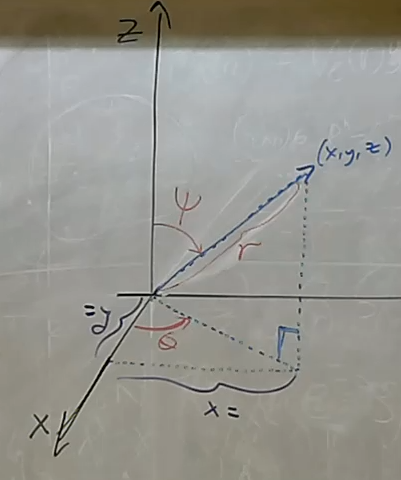 Z
(x,y,z)
ψ
r
=y
θ
x =
X